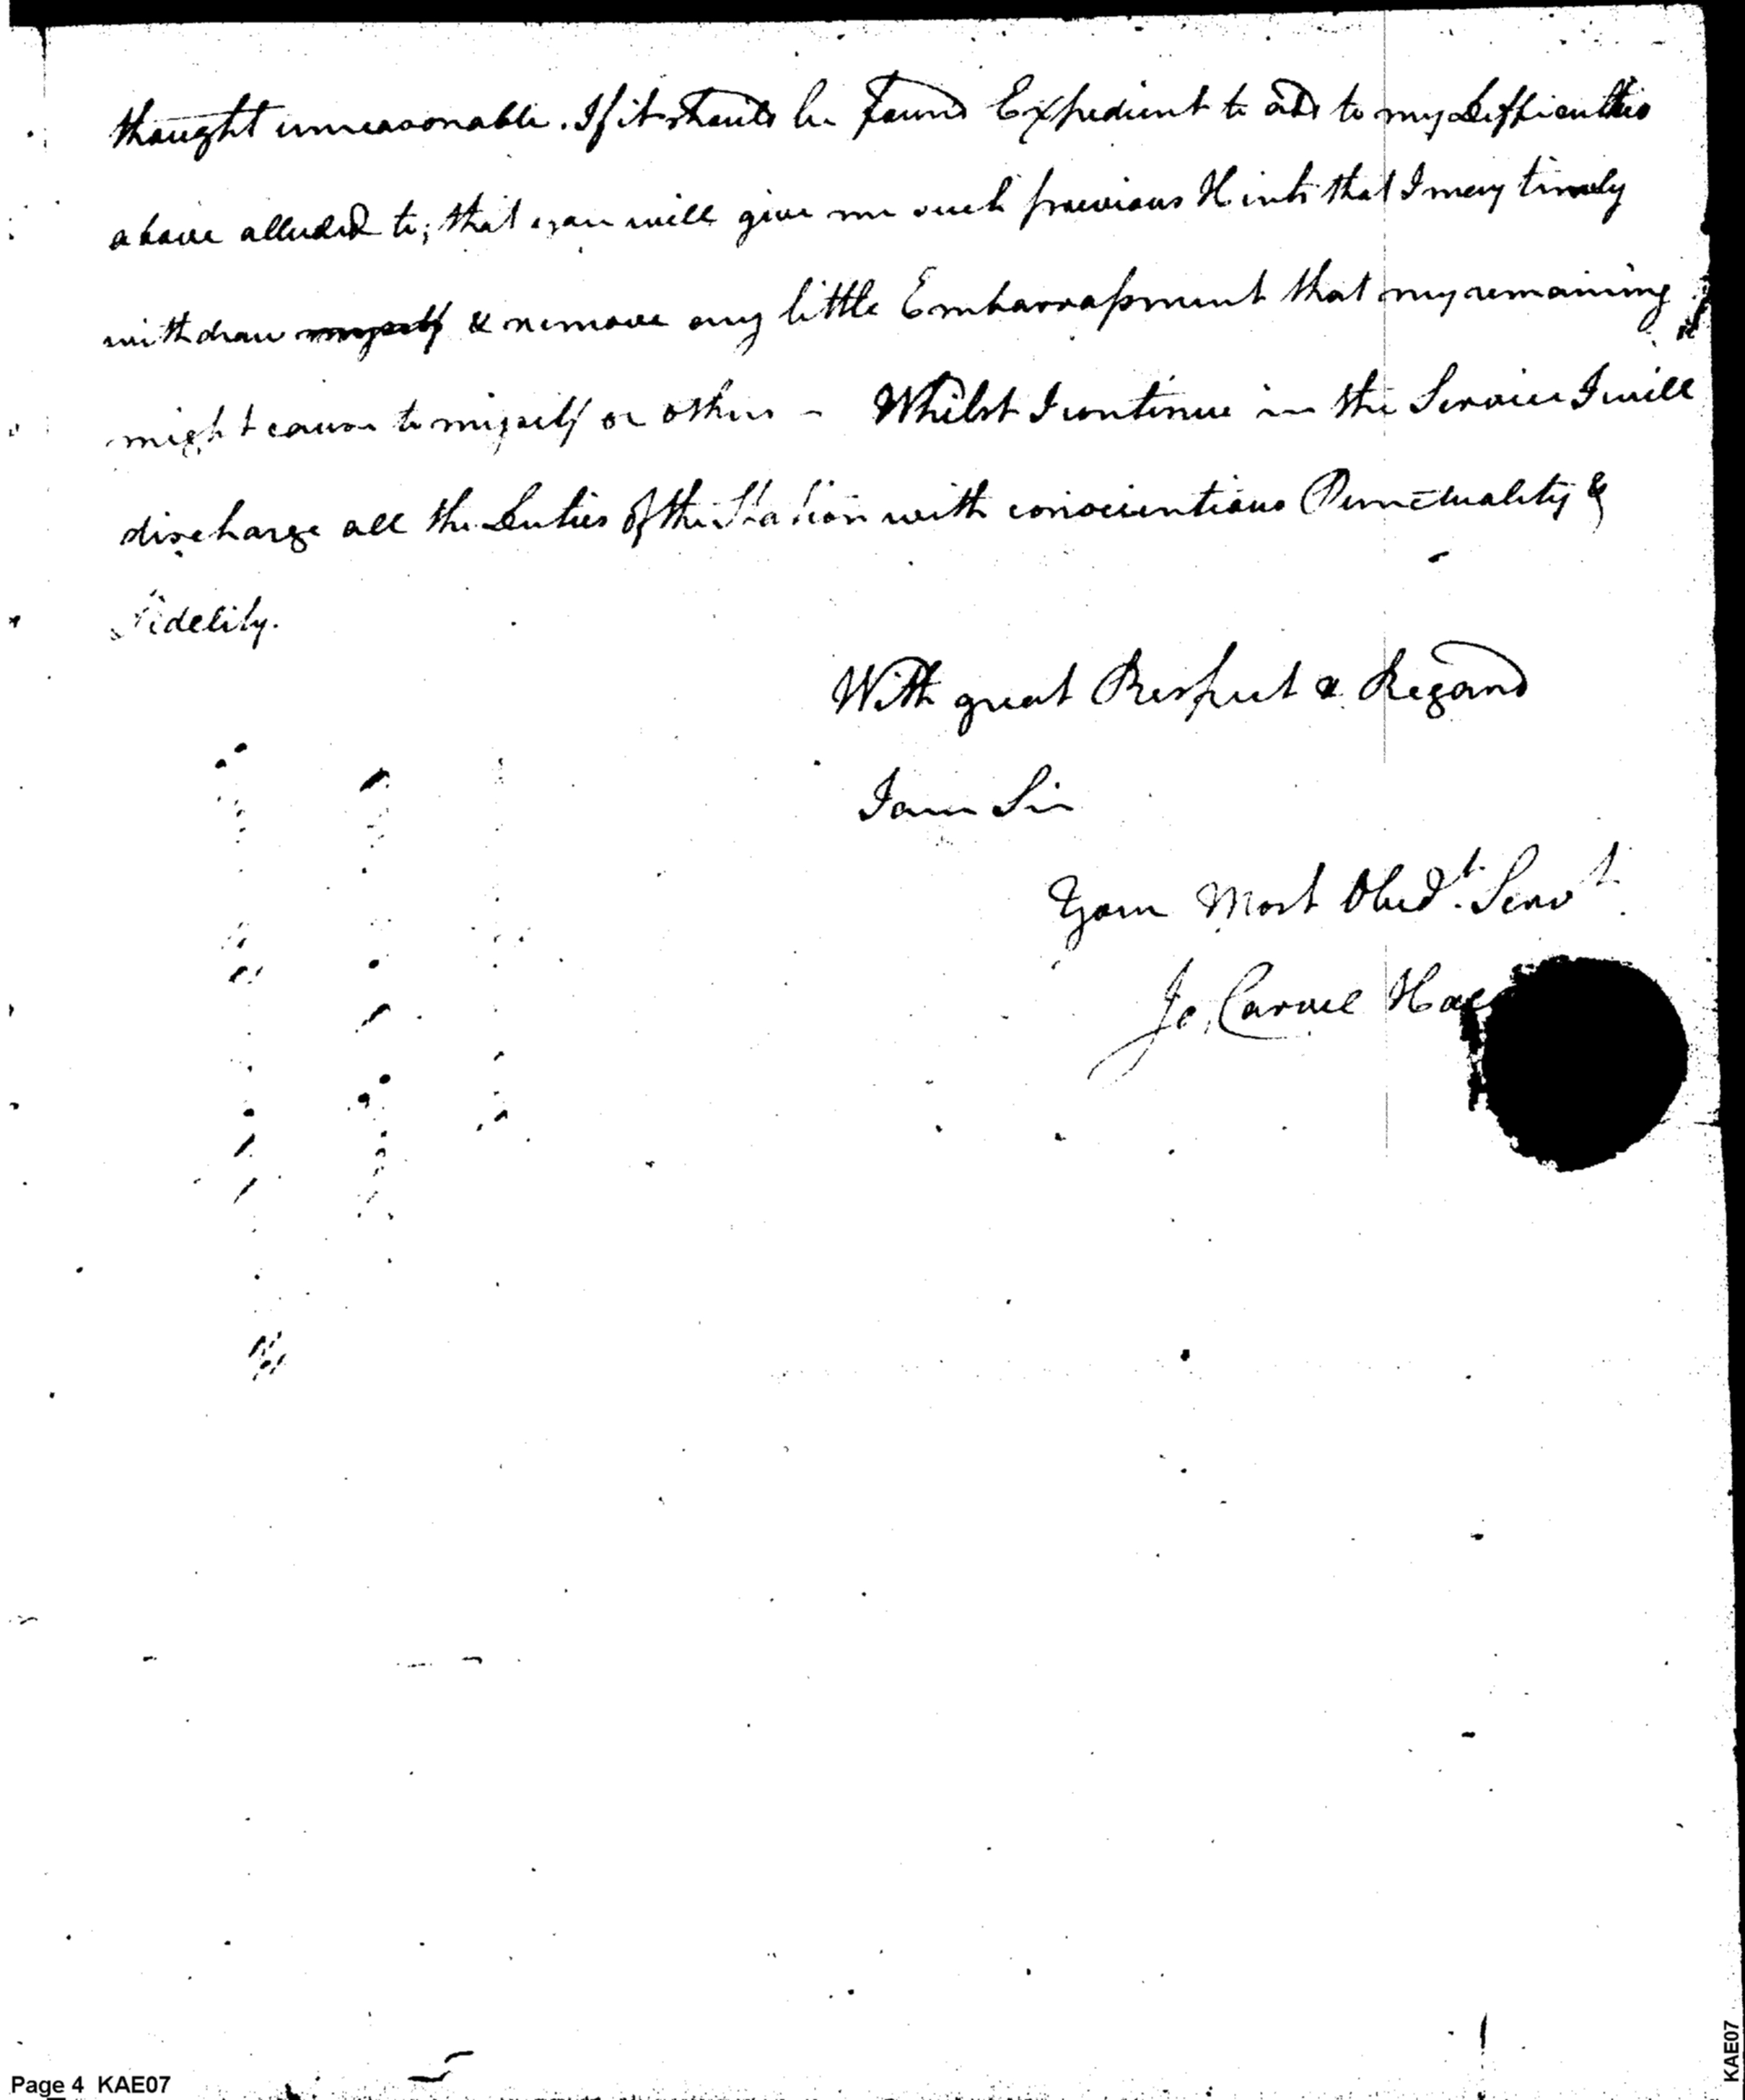 thought unreasonable. If it should be found Expedient to add to my Difficulties
above alluded to; that you will give me such previous Hints that I may timely
withdraw myself & remove any little Embarrassment that my remaining
might cause to myself or others - Whilst I continue in the Service I will
discharge all the Duties of the Station with conscientious Punctuality &
Fidelity.
With great Respect & Regard
I am Sir
Your Most Obedt. Servt.
Jo. Carvel Hall
Page 4 KAE07
KAE07